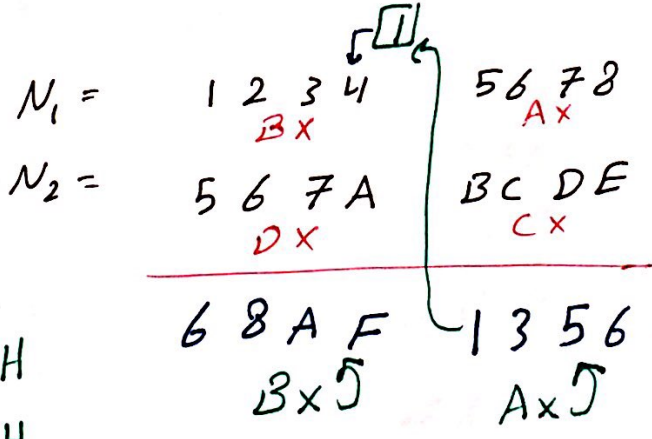 1
N₁ = 1 2 3 4 5 6 7 8
B X A X
N₂ = 5 6 7 A B C D E
D X C X
6 8 A F 1 3 5 6
H
B X A X